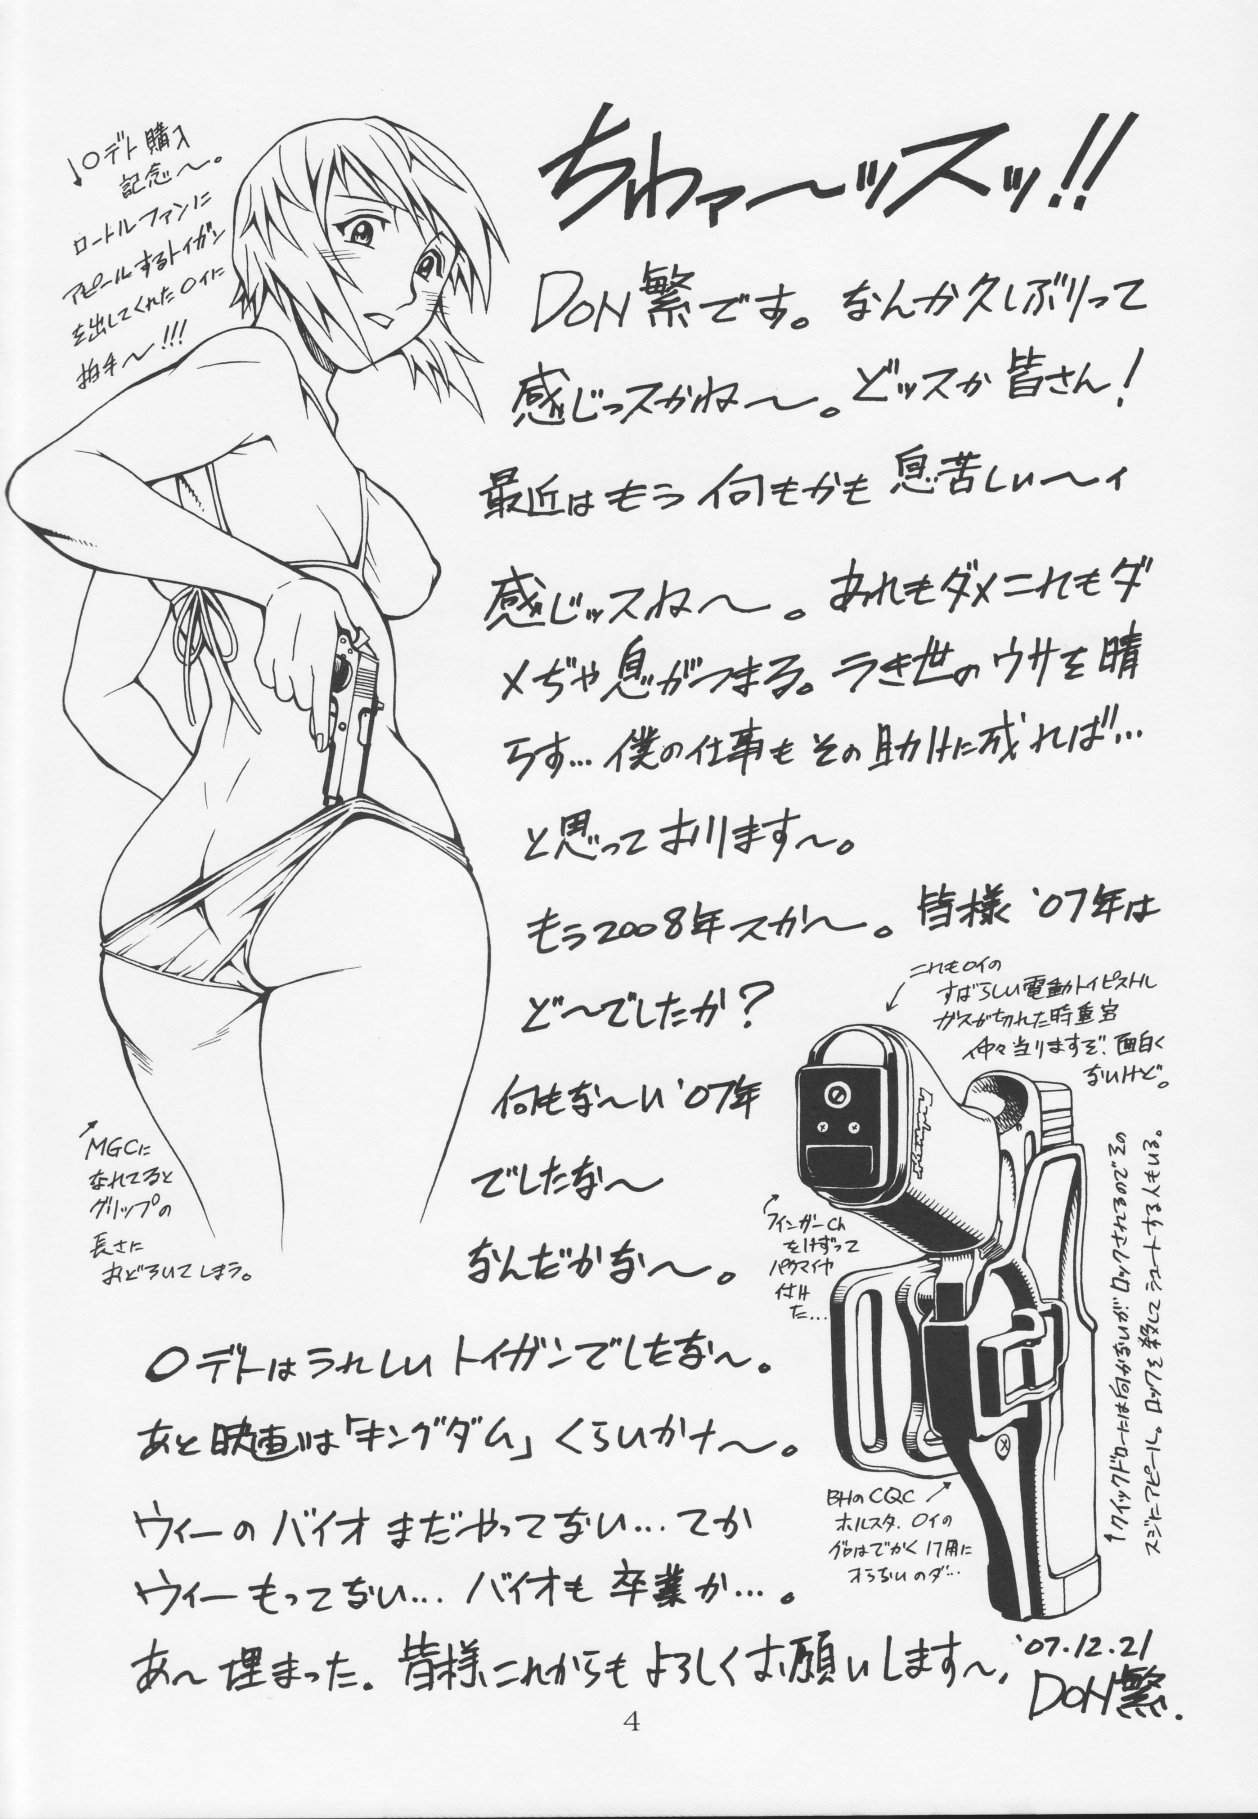 ちわァ〜ッスッ!!
DON繁です。なんか久しぶりって
感じっスかね〜。どッスか皆さん!
最近はもう何もかも息苦しい〜ィ
感じッスね〜。あれもダメこれもダ
メぢゃ息がつまる。うき世のウサを晴
らす…僕の仕事もその助けに成れば…
と思っております〜。
もう2008年スか〜。皆様'07年は
ど〜でしたか?
何もな〜い'07年
でしたな〜
なんだかな〜。
〇デトはうれしいトイガンでしたな〜。
あと映画は「キングダム」くらいかナ〜。
ウィーのバイオまだやってない…てか
ウィーもってない…バイオも卒業か…。
あ〜埋まった。皆様これからもよろしくお願いします〜、
'07.12.21
DON繁.
↓〇デト購入
記念〜。
ロートルファンに
アピールするトイガン
を出してくれた〇イに
拍手〜!!!
MGCに
なれてると
グリップの
長さに
おどろいてしまう。
これも〇イの
すばらしい電動トイピストル
ガスが切れた時重宝
仲々当りますぞ、面白く
ないけど。
フィンガーCh
をけずって
パクマイヤ
付けた…
BHのCQC
ホルスタ、〇イの
グロはでかく17用に
オうないのダ…
↑クイックドローには向かないが、ロックされるのでその
スジにアピール。ロックを殺してシュートする人もいる。
4